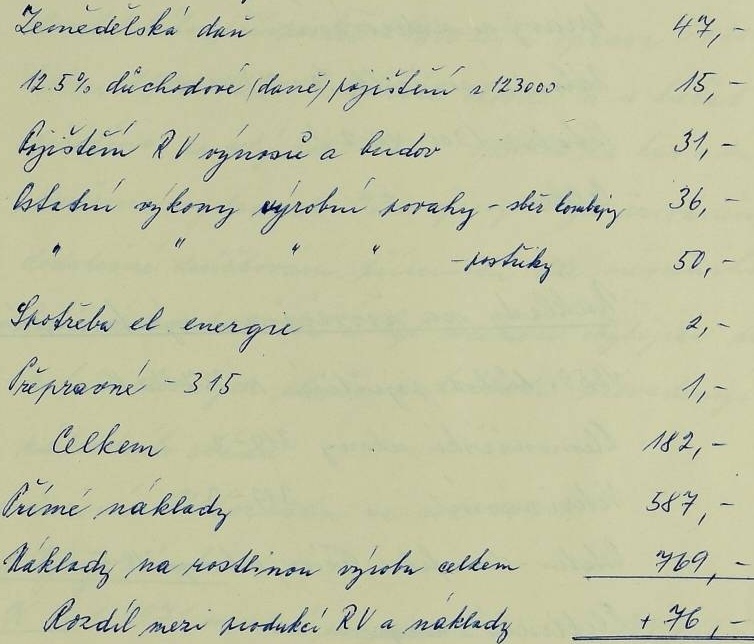 Zemědělská daň 47,-
12.5% důchodové (daně) pojištění z 123000 15,-
Pojištění RV výnosů a budov 31,-
Ostatní výkony výrobní povahy - sběr kombajny 36,-
" " " " - postřiky 50,-
Spotřeba el. energie 2,-
Přepravné - 315 1,-
Celkem 182,-
Přímé náklady 587,-
Náklady na rostlinou výrobu celkem 769,-
Rozdíl mezi produkcí RV a náklady + 76,-